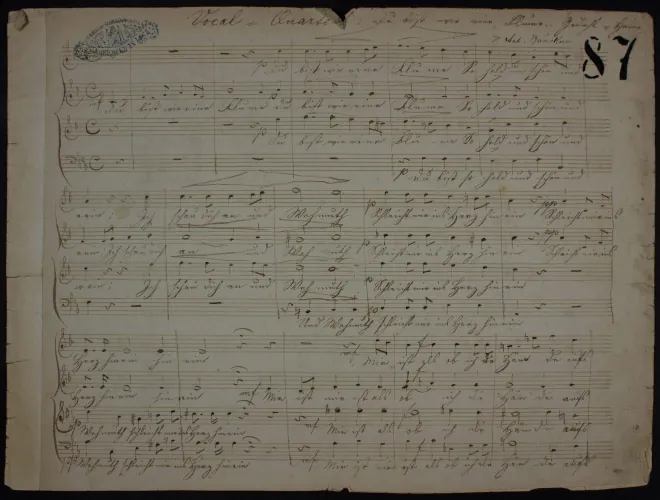 Vocal - Quart : du bist wie eine Blume
87
du bist wie eine Blu me So hold und schön und
du bist wie eine Blume du bist wie eine Blume So hold und schön und
du bist wie eine Blu me So hold und schön und
du bist so hold und schön und
rein; Ich schau dich an und Wehmuth Schleicht mir ins Herz hinein Schleicht mir ins
rein Ich schau dich an und Weh muth Schleicht mir ins Herz hinein Schleicht mir ins
rein; Ich schau dich an und Weh muth Schleicht mir ins Herz hinein
Und Wehmuth schleicht mir ins Herz hinein
Herz hinein hin ein Mir ist als ob ich die Hän de aufs
Herz hinein hin ein Mir ist mir ist als ob ich die Hän de aufs
Wehmuth schleicht mir ins Herz hinein Mir ist als ob ich die Hände aufs
Wehmuth schleicht mir ins Herz hinein Mir ist mir ist als ob ich die Hän de aufs